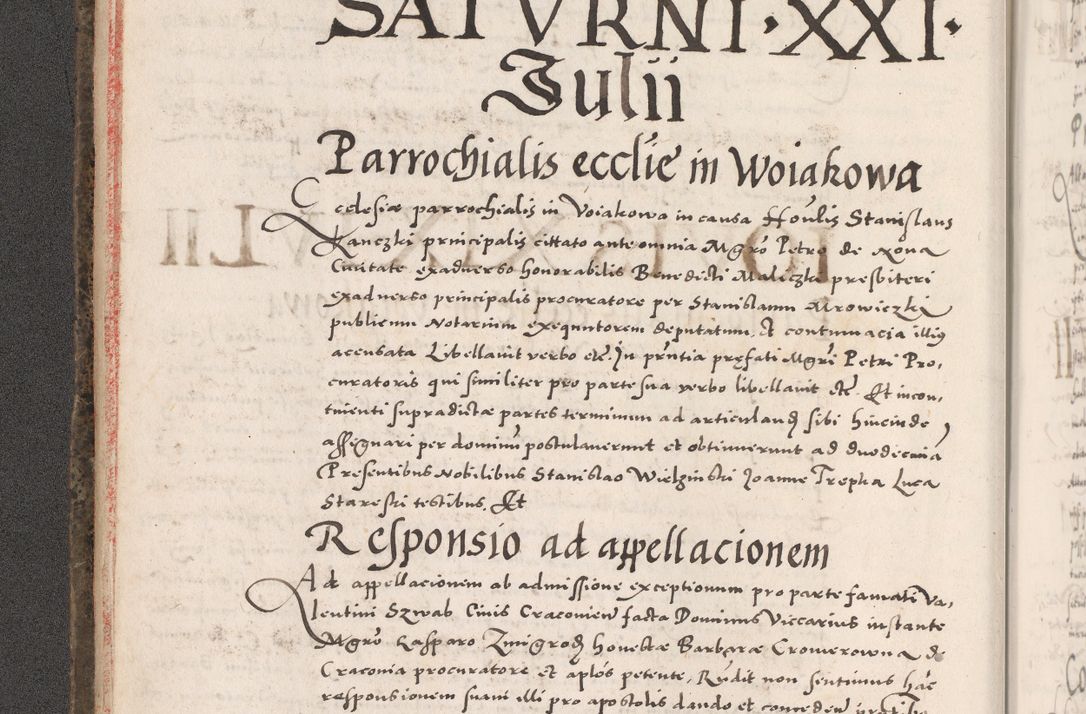 SATVRNI · XXI ·
Iulii
Parrochialis ecclie in Woiakowa
Ecclesiæ parrochialis in Voiakowa in causa Hon͞lis Stanislaus
Kanczki principalis cittato ante omnia Mgro Petro de Nova
Civitate ex adverso honorabilis Benedicti Maliczki presbiteri
ex adverso principalis procuratore per Stanislaum Mrowiczki
publicum Notarium exequutorem deputatum. Et contumacia illius
accusata Libellavit verbo etc. In pn̄tia præfati Mgri Petri Pro,
curatoris qui similiter pro parte sua verbo libellavit etc. Et incon,
tinenti supradictæ partes terminum ad articuland sibi hincinde
assignari per dominum postulaverunt et obtinuerunt ad duodecima
Presentibus Nobilibus Stanislao Wielzinski Joanne Trepka Luca
Stareski testibus. Et
Responsio ad appellacionem
Ad appellacionem ab admissione exceptionum pro parte famati Va,
lentini Szwab Civis Cracovien facta Dominus Viccarius instante
Mgro Casparo Zmigrod honestæ Barbaræ Cromerowna de
Cracovia procuratore et aplos petente, Rndit non sentimus hac
responsionem suam illi pro apostolis dando et conceden